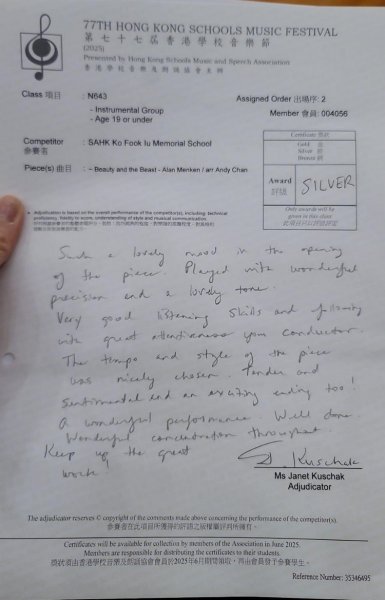 77TH HONG KONG SCHOOLS MUSIC FESTIVAL
第七十七屆香港學校音樂節
(2025)
Presented by Hong Kong Schools Music and Speech Association
香港學校音樂及朗誦協會主辦
Class 項目 : N643
- Instrumental Group
- Age 19 or under
Assigned Order 出場序: 2
Member 會員: 004056
Competitor 參賽者 : SAHK Ko Fook Iu Memorial School
Piece(s) 曲目 : ~ Beauty and the Beast - Alan Menken / arr Andy Chan
Certificate 獎狀
Gold 金
Silver 銀
Bronze 銅
Award 評級
SILVER
Only awards will be given in this class
此項目只以評級評定
Adjudication is based on the overall performance of the competitor(s), including: technical proficiency, fidelity to score, understanding of style and musical communication.
Such a lovely mood in the opening
of the piece. Played with wonderful
precision and a lovely tone.
Very good listening skills and following
with great attentiveness your conductor.
The tempo and style of the piece
was nicely chosen. Tender and
sentimental and an exciting ending too!
A wonderful performance. Well done.
Wonderful concentration throughout.
Keep up the great
work!
J. Kuschak
Ms Janet Kuschak
Adjudicator
The adjudicator reserves © copyright of the comments made above concerning the performance of the competitor(s).
參賽者在此項目所獲得的評語之版權屬評判所擁有。
Certificates will be available for collection by members of the Association in June 2025.
Members are responsible for distributing the certificates to their students.
獎狀須由香港學校音樂及朗誦協會會員於2025年6月期間領取，再由會員發予參賽學生。
Reference Number: 35346495